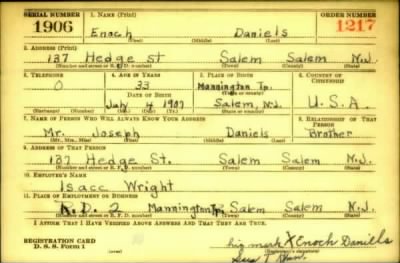 SERIAL NUMBER 1. NAME (Print) ORDER NUMBER
1906 Enoch Daniels 1217
(First) (Middle) (Last)
2. ADDRESS (Print)
137 Hedge St Salem Salem N.J.
(Number and street or R. F. D. number) (Town) (County) (State)
3. TELEPHONE 4. AGE IN YEARS 5. PLACE OF BIRTH 6. COUNTRY OF CITIZENSHIP
0 33 Mannington Tp.
DATE OF BIRTH
July 4 1907 Salem, N.J. U.S.A.
(Exchange) (Number) (Mo.) (Day) (Yr.) (State or country)
7. NAME OF PERSON WHO WILL ALWAYS KNOW YOUR ADDRESS 8. RELATIONSHIP OF THAT PERSON
Mr. Joseph Daniels Brother
(Mr., Mrs., Miss) (First) (Middle) (Last)
9. ADDRESS OF THAT PERSON
137 Hedge St. Salem Salem N.J.
(Number and street or R. F. D. number) (Town) (County) (State)
10. EMPLOYER'S NAME
Isacc Wright
11. PLACE OF EMPLOYMENT OR BUSINESS
R.D. 2 Mannington Tp. Salem Salem N.J.
(Number and street or R. F. D. number) (Town) (County) (State)
I AFFIRM THAT I HAVE VERIFIED ABOVE ANSWERS AND THAT THEY ARE TRUE.
REGISTRATION CARD
D. S. S. Form 1
his mark X Enoch Daniels
(Registrant's signature)